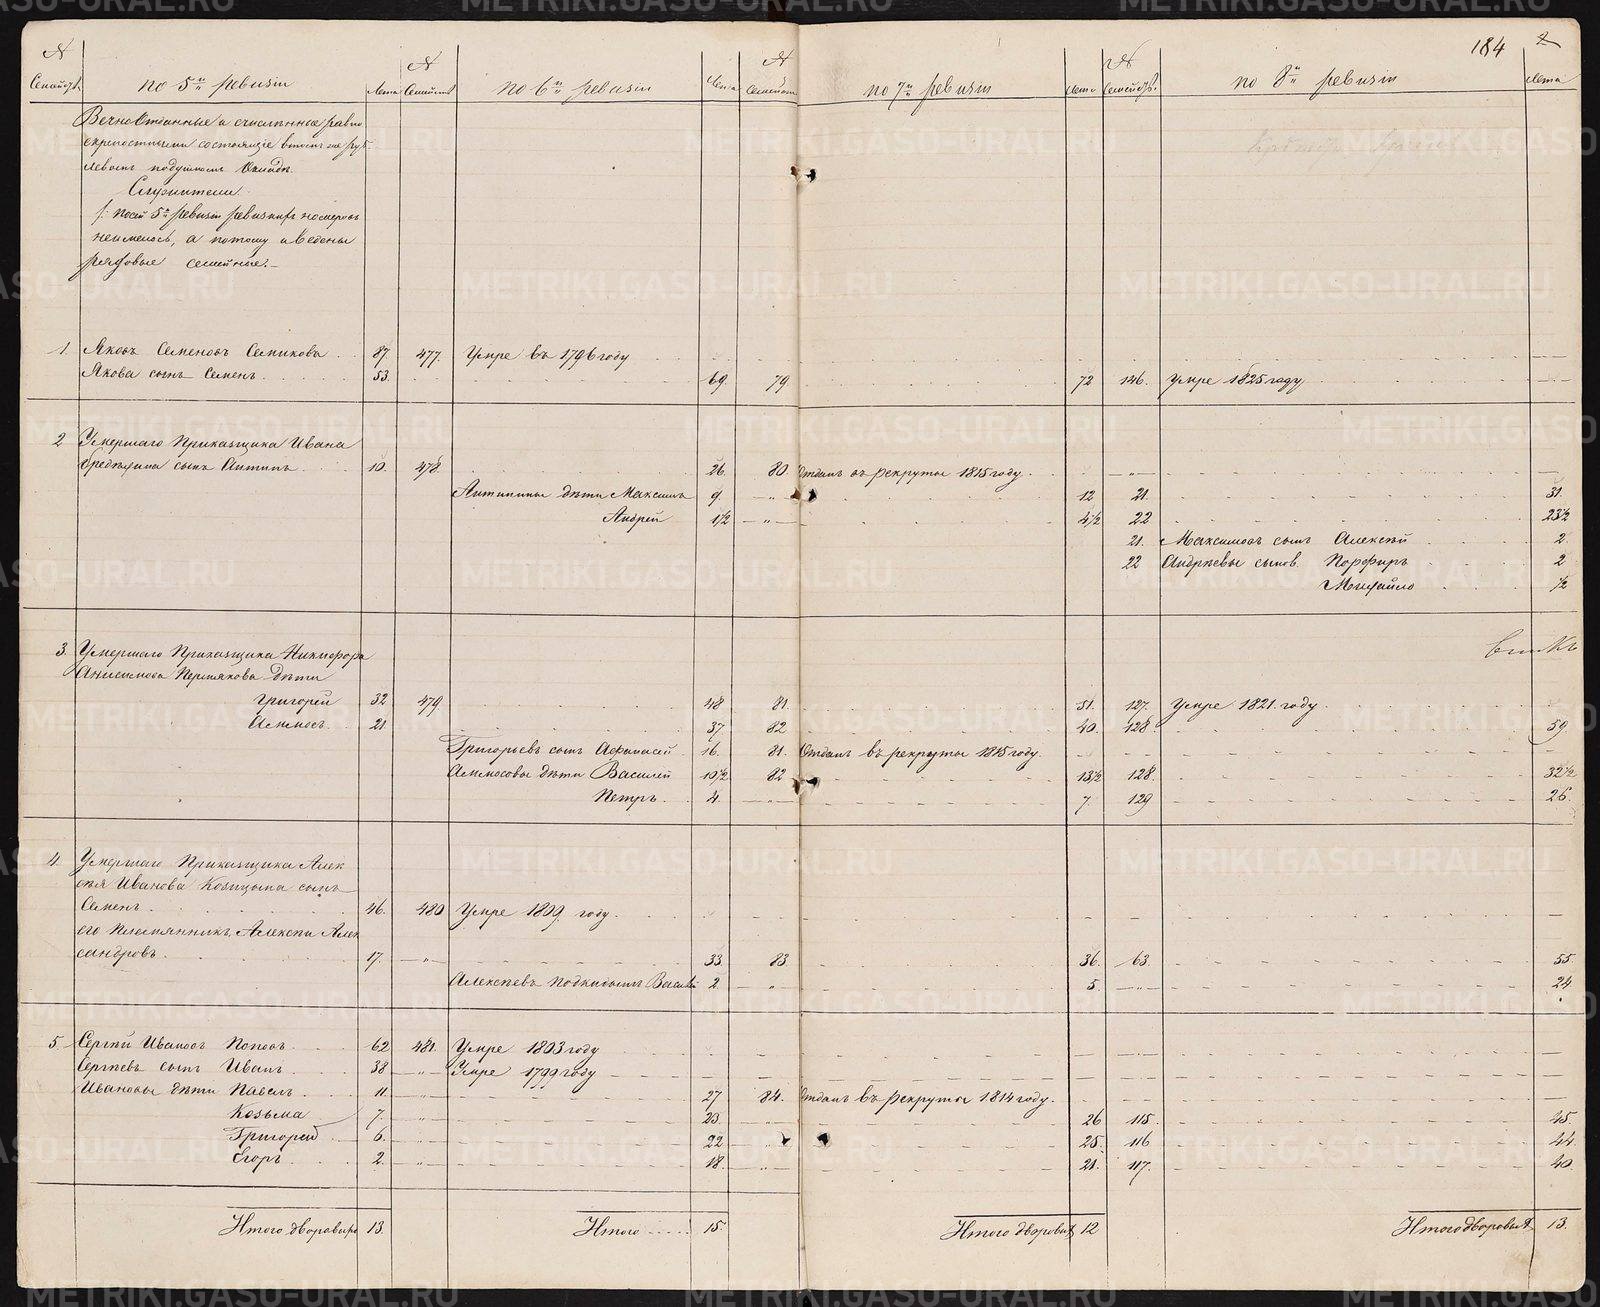 184
№ Семейств. по 5й ревизiи Лета № Семейств по 6й ревизiи Лета № Семейств по 7й ревизiи Лета № Семейств. по 8й ревизiи Лета
Вечно Отданные и счисленные равно
скрепостными состоящiе
подушномъ Окладе.
Служители.
/: После 5й ревизiи ревизскихъ номеровъ
неимелось, а потому и ведены
рядовые семейные.
1. Яковъ Семеновъ Семиковъ 87. 477. Умре въ 1796 году
Якова сынъ Семенъ 53. 69. 79. 72 146. умре 1825 году
2 Умершаго Прикащика Ивана
сынъ Антипъ 10. 478. 26. 80. Отданъ въ рекруты 1815 году
Антипины дѣти Максимъ 9. 12 21. 31.
Андрей 1½ 4½ 22 23½
21. Максимовъ сынъ Алексѣй 2.
22 Андрѣевы сынов. Порфиръ 2
Михайло ½
3. Умершаго Прикащика Никифора
Анисимова Пермякова дѣти
Григорей 32 479 48 81. 51. 127. Умре 1821 году
Амосъ 21. 37 82 40. 128 59.
Григорьевъ сынъ Афанасей 16. 81. Отданъ въ рекруты 1815 году.
Амосовы дѣти Василей 10½ 82 13½ 128 32½
Петръ 4. 7. 129 26.
4. Умершаго Прикащика Алек
сѣя Иванова Козицына сынъ
Семенъ 46. 480 Умре 1809 году.
его племянникъ Алексѣй Алек
сандровъ 17. 33. 83. 36. 63. 55.
Алексѣевъ подкидышъ Василей 2. 5. 24
5. Сергѣй Ивановъ Поповъ 62 481. Умре 1803 году
Сергѣевъ сынъ Иванъ 38 Умре 1799 году
Ивановы дѣти Павелъ 11. 27 84. Отданъ въ рекруты 1814 году.
Козьма 7. 23. 26 115. 45.
Григорей 6. 22 25. 116 44.
Егоръ 2. 18. 21. 117. 40.
Итого дворовыхъ 13. Итого 15. Итого дворовыхъ 12 Итого дворовыхъ 13.
METRIKI.GASO-URAL.RU